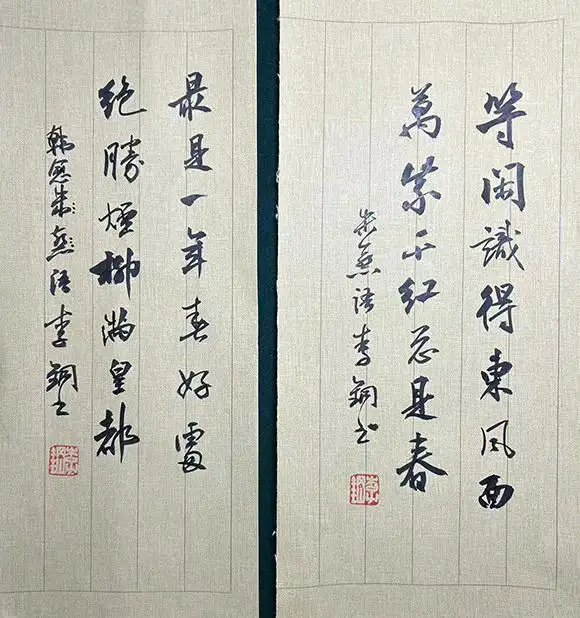 等闲識得東风面
萬紫千红总是春
朱熹語李铜书
最是一年春好處
絶勝煙柳满皇都
韩愈朱熹语李铜书